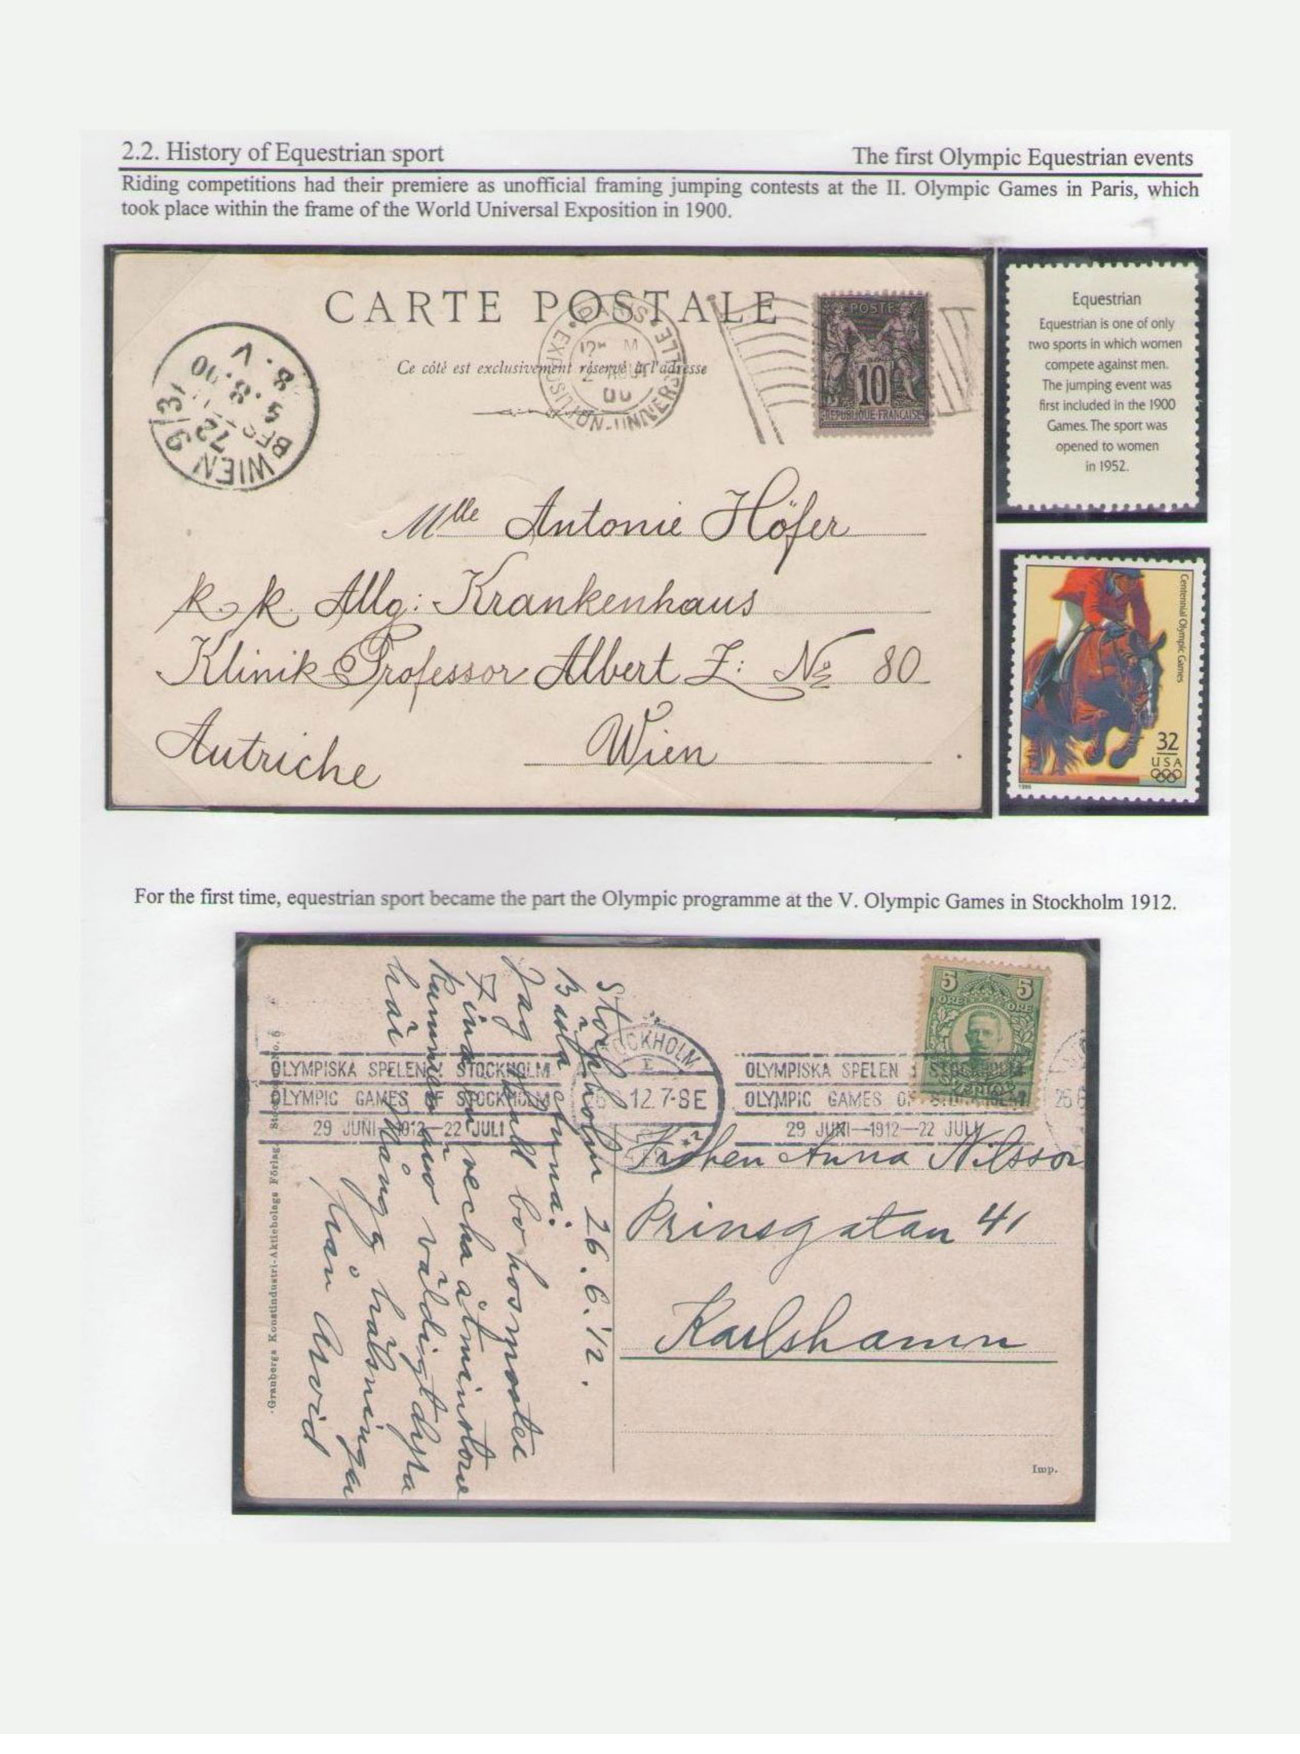 2.2. History of Equestrian sport
The first Olympic Equestrian events
Riding competitions had their premiere as unofficial framing jumping contests at the II. Olympic Games in Paris, which
took place within the frame of the World Universal Exposition in 1900.
CARTE POSTALE
Ce côté est exclusivement réservé à l'adresse
PARIS EXPOSITION-UNIVERSELLE
00
POSTE
10
REPUBLIQUE FRANCAISE
WIEN 9/3
72
BEST
5.8.00
8.V
Mlle Antonie Höfer
k. k. Allg: Krankenhaus
Klinik Professor Albert Z: No 80
Autriche
Wien
Equestrian
Equestrian is one of only
two sports in which women
compete against men.
The jumping event was
first included in the 1900
Games. The sport was
opened to women
in 1952.
Centennial Olympic Games
32
USA
1996
For the first time, equestrian sport became the part the Olympic programme at the V. Olympic Games in Stockholm 1912.
5 5
ÖRE ÖRE
SVERIGE
STOCKHOLM
12.7-8E
OLYMPISKA SPELEN I STOCKHOLM
OLYMPIC GAMES OF STOCKHOLM
29 JUNI—1912—22 JULI
OLYMPISKA SPELEN I STOCKHOLM
OLYMPIC GAMES OF STOCKHOLM
29 JUNI—1912—22 JULI
Stockholm 26.6.12.
Bästa Anna!
Jag skall bo hos moster
väldigt dyra
här
hälsningar
från Arvid
Fröken Anna Nilsson
Prinsgatan 41
Karlshamn
Granbergs Konstindustri-Aktiebolags Förlag, Stockholm
Imp.